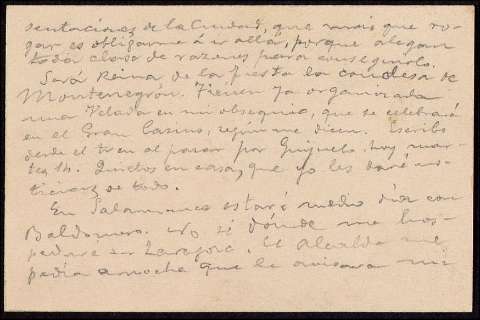 sentaciones de la Ciudad, que más que ro-
gar es obligarme á ir allá, porque alegan
toda clase de razones para conseguirlo.
Será Reina de la fiesta la condesa de
Montenegrón. Tienen ya organizada
una Velada en mi obsequio, que se celebrará
en el Gran Casino, según me dicen. Escribo
desde el tren al pasar por Guijuelo. hoy mar-
tes 14. Quietos en casa, que yo les daré no-
ticias de todo.
En Salamanca estaré medio día con
Baldomero. No sé dónde me hos-
pedaré en Zaragoza. El Alcalde me
pedía anoche que le avisara mi